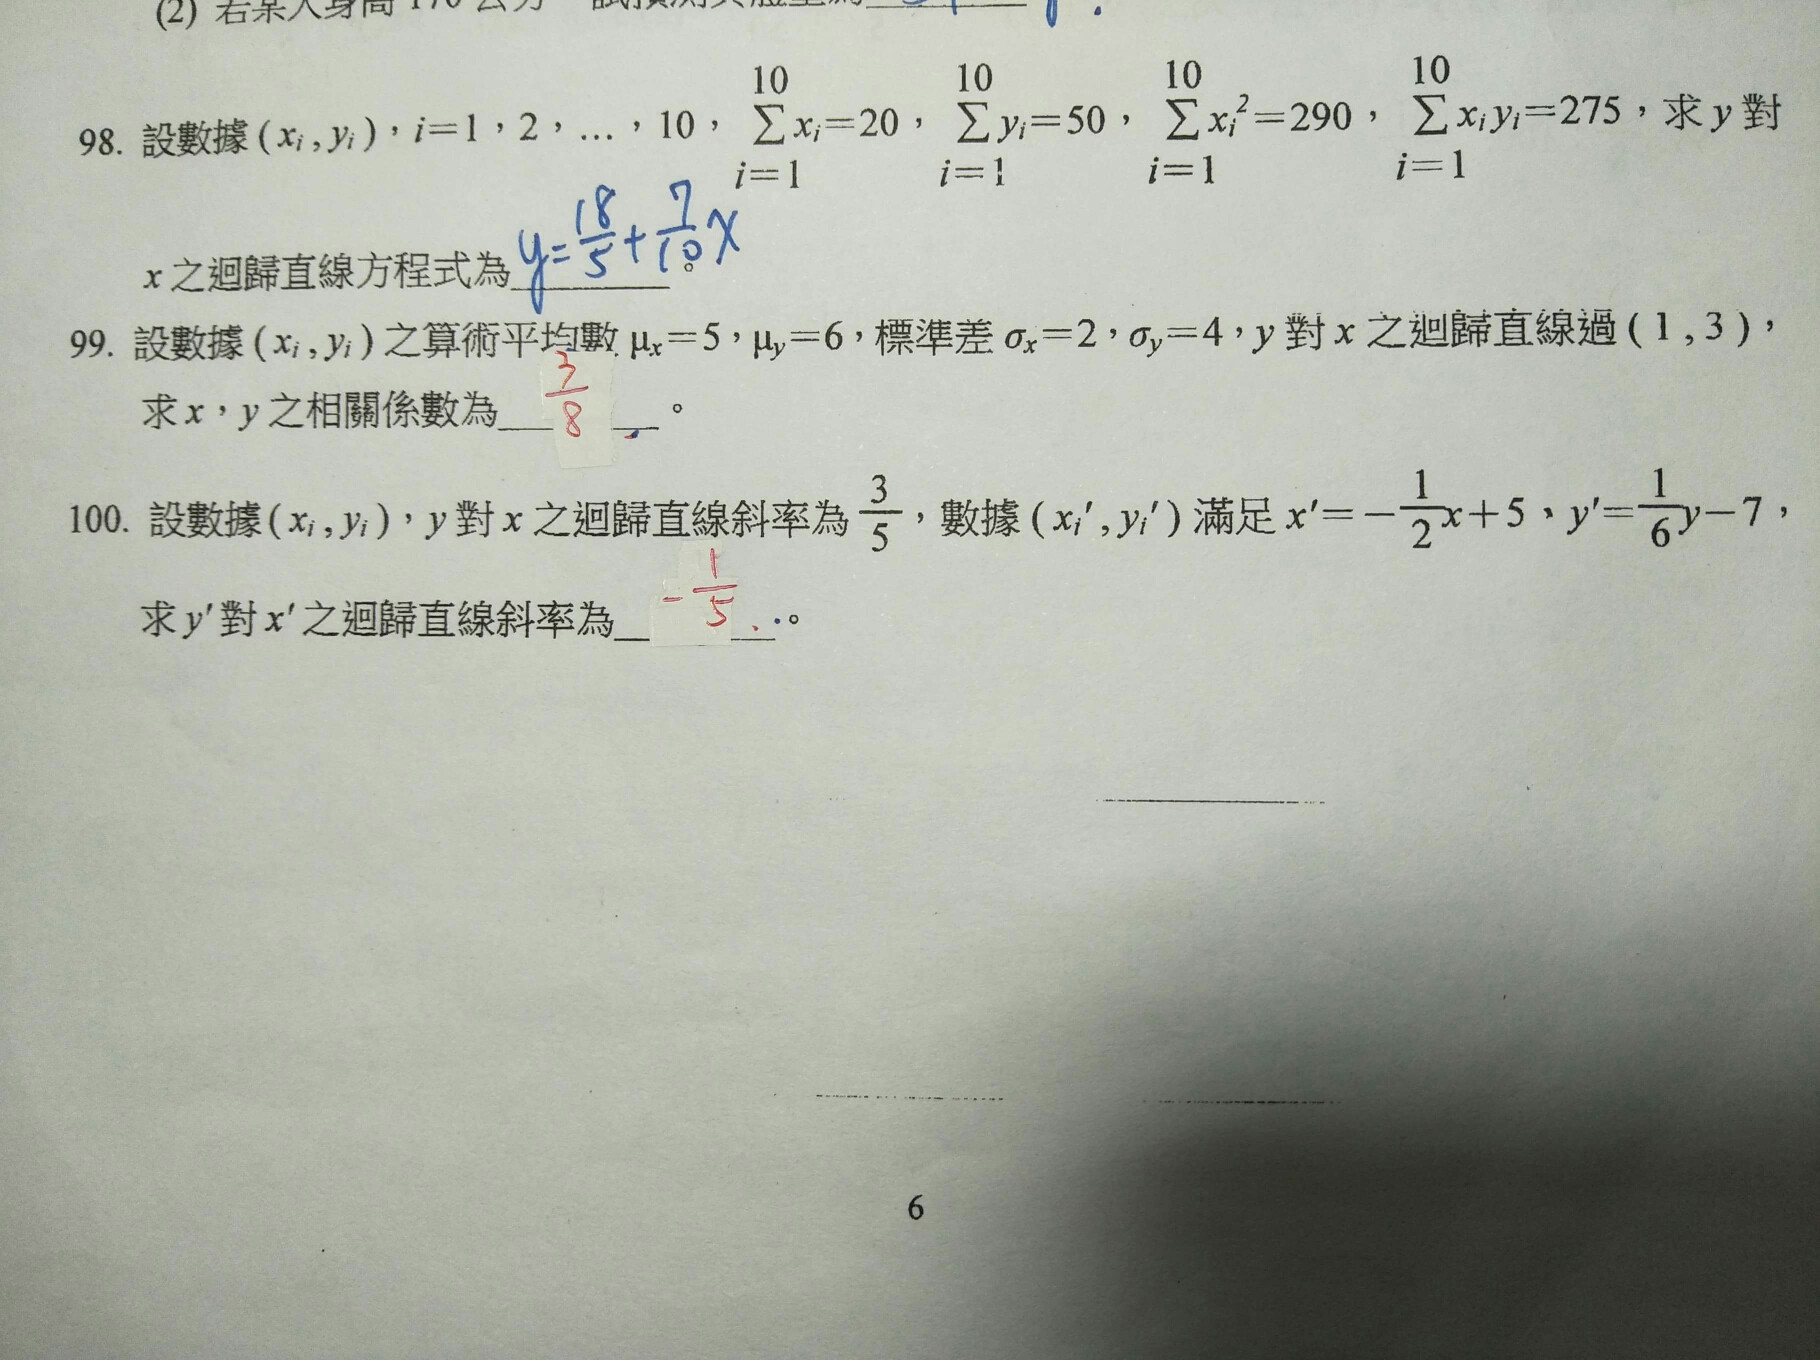 (2) 若某人身高 170 公分
98. 設數據 (xᵢ,yᵢ),i=1,2,…,10, ∑_{i=1}^{10} xᵢ=20, ∑_{i=1}^{10} yᵢ=50, ∑_{i=1}^{10} xᵢ²=290, ∑_{i=1}^{10} xᵢyᵢ=275,求 y 對
x 之迴歸直線方程式為 y=18/5+7/10x。
99. 設數據 (xᵢ,yᵢ) 之算術平均數 μₓ=5,μy=6,標準差 σₓ=2,σy=4,y 對 x 之迴歸直線過 (1,3),
求 x,y 之相關係數為 3/8。
100. 設數據 (xᵢ,yᵢ),y 對 x 之迴歸直線斜率為 3/5,數據 (xᵢ′,yᵢ′) 滿足 x′=−1/2x+5、y′=1/6y−7,
求 y′ 對 x′ 之迴歸直線斜率為 -1/5。
6